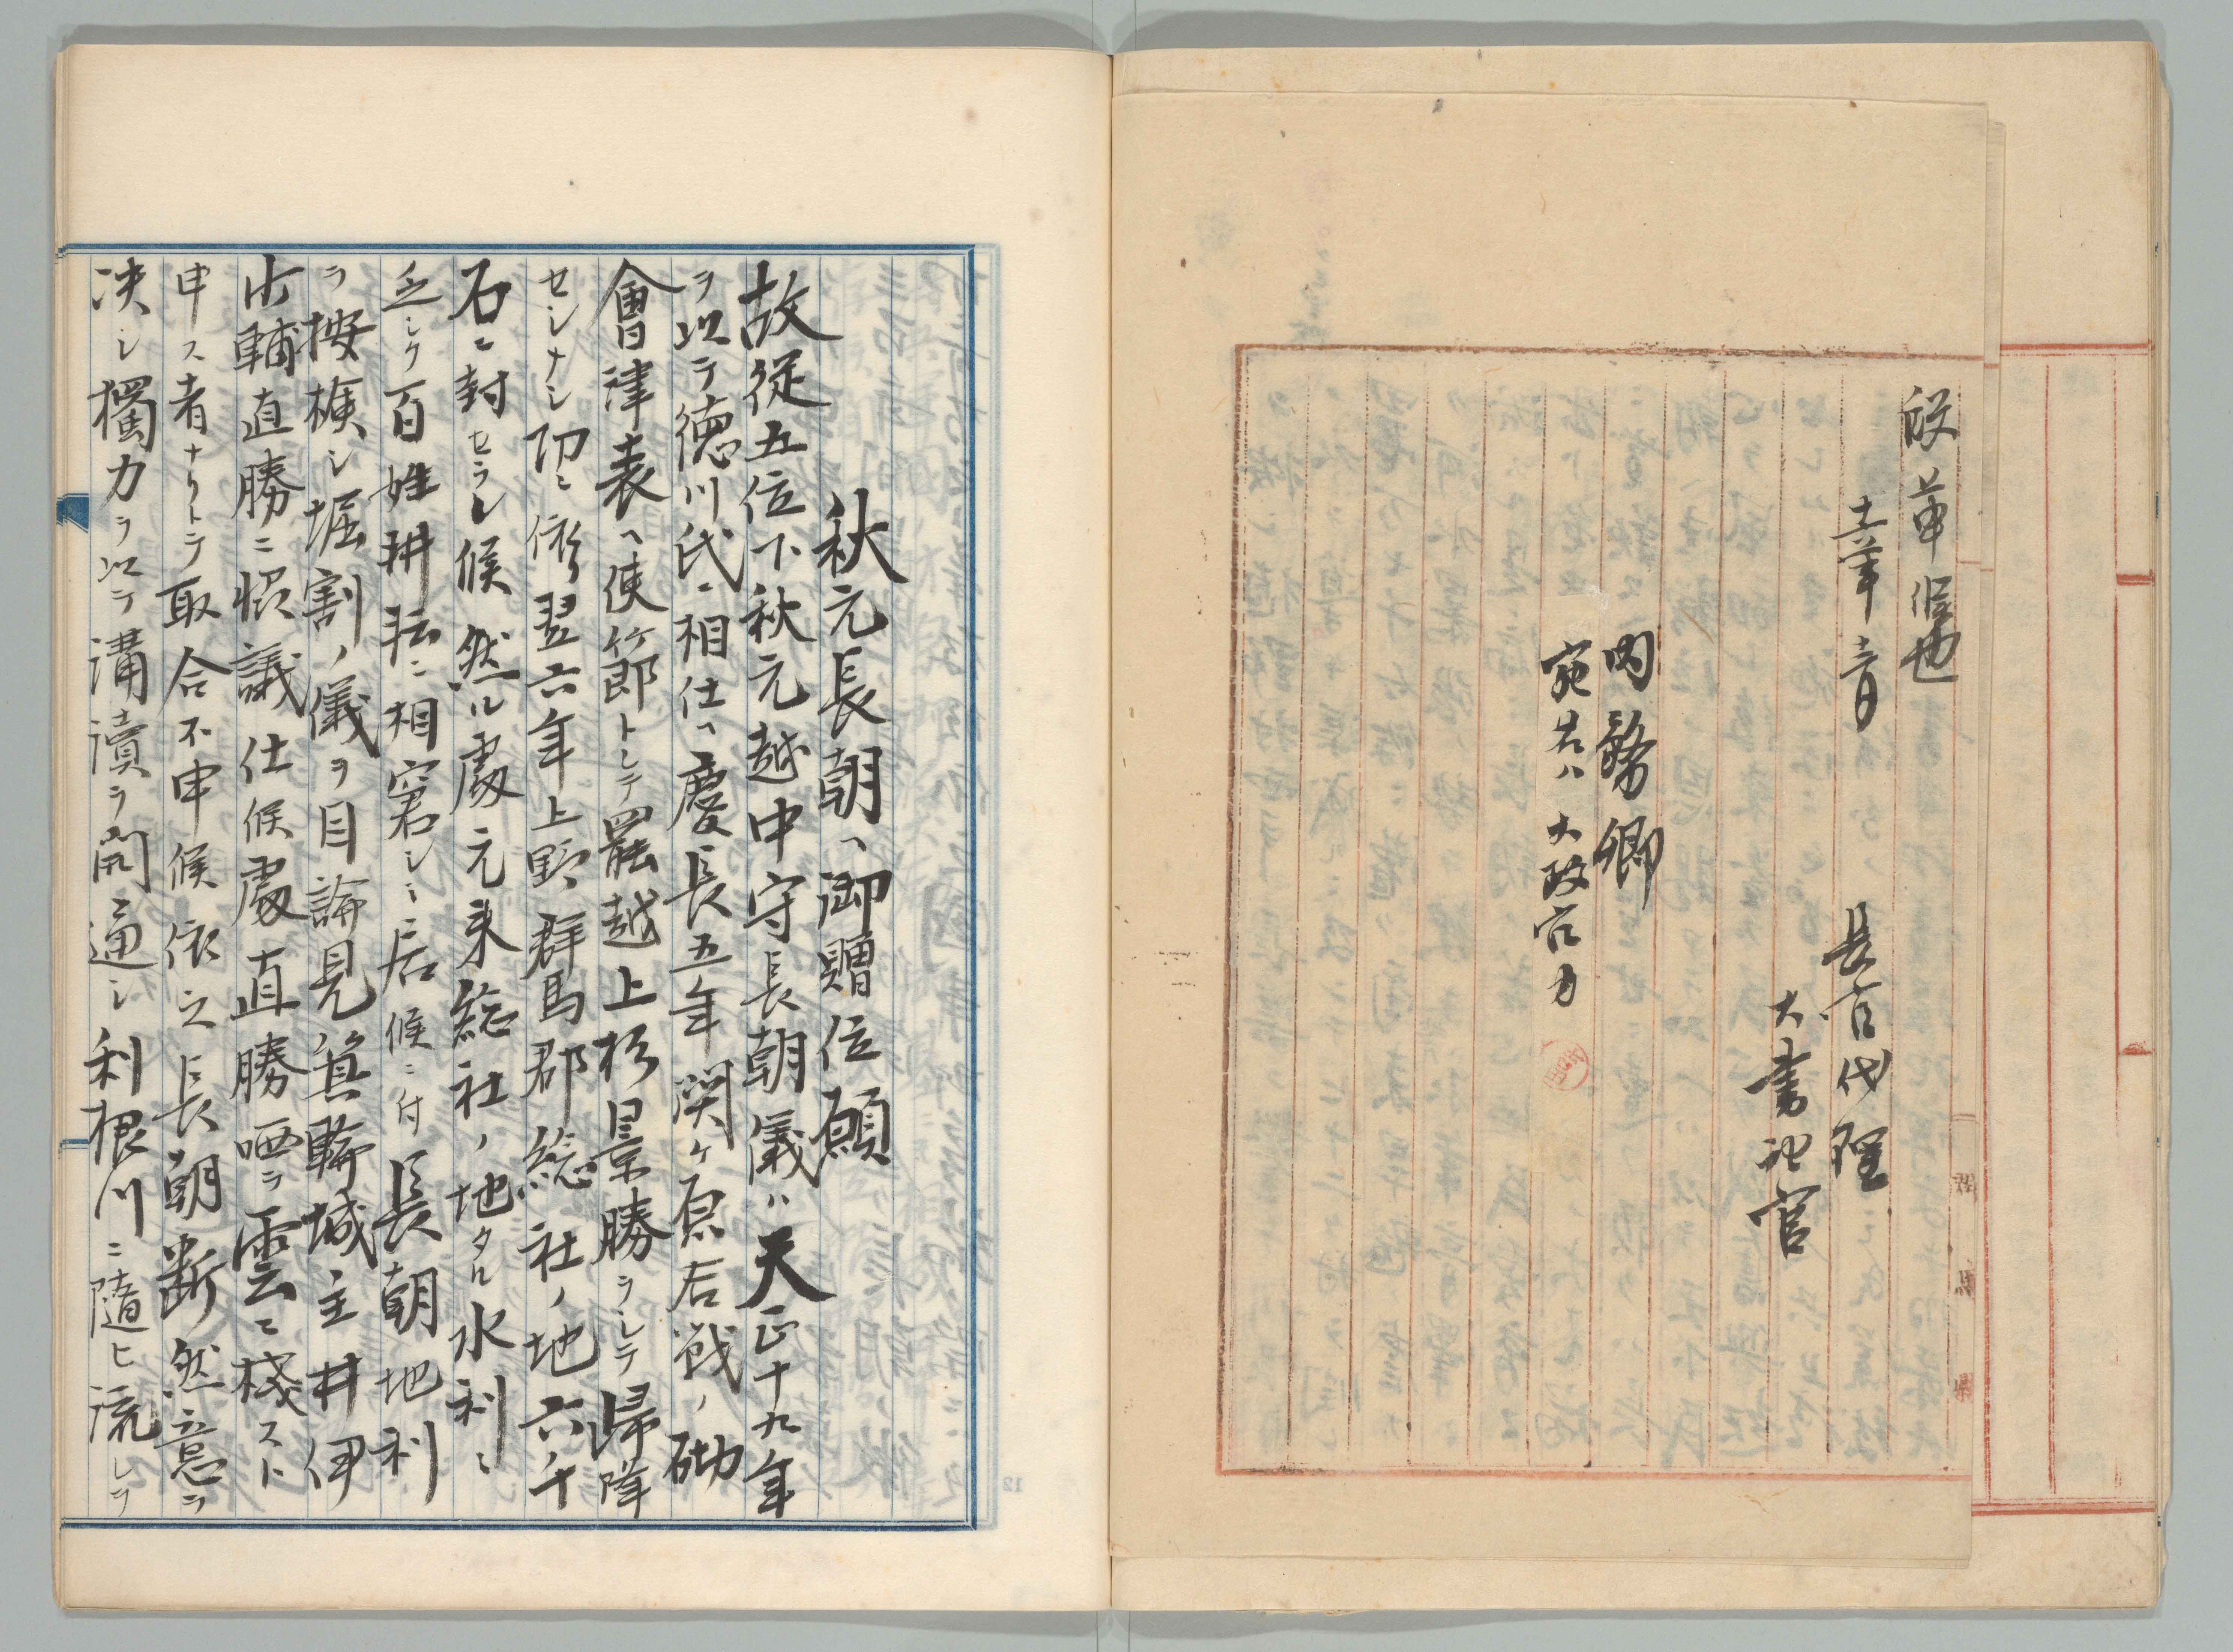 段 葉候也
十二年 一月
長官代理
大書記官
内務卿
宛若ハ太政官カ
秋元長朝ヘ御贈位願
故従五位下秋元越中守長朝儀ハ天正十九年
ヲ以テ徳川氏ニ相仕ヘ慶長五年関ヶ原右戦ノ砌
會津表ヘ使節トシテ罷越上杉景勝ヲシテ帰降
セシナシ功ニ依翌六年上野群馬郡総社ノ地六千
石ニ封セラレ候然ル處元来総社ノ地タル水利ニ
乏シク百姓耕耘ニ相窘シミ居候ニ付長朝地利
ヲ按検シ堀割ノ儀ヲ目論見箕輪城主井伊
少輔直勝ニ協議仕候處直勝哂ヲ雲ニ棧スト
申ス者ナリトテ取合不申候依之長朝断然意ヲ
决シ獨力ヲ以テ溝瀆ヲ開通シ利根川ニ隨ヒ流レヲ